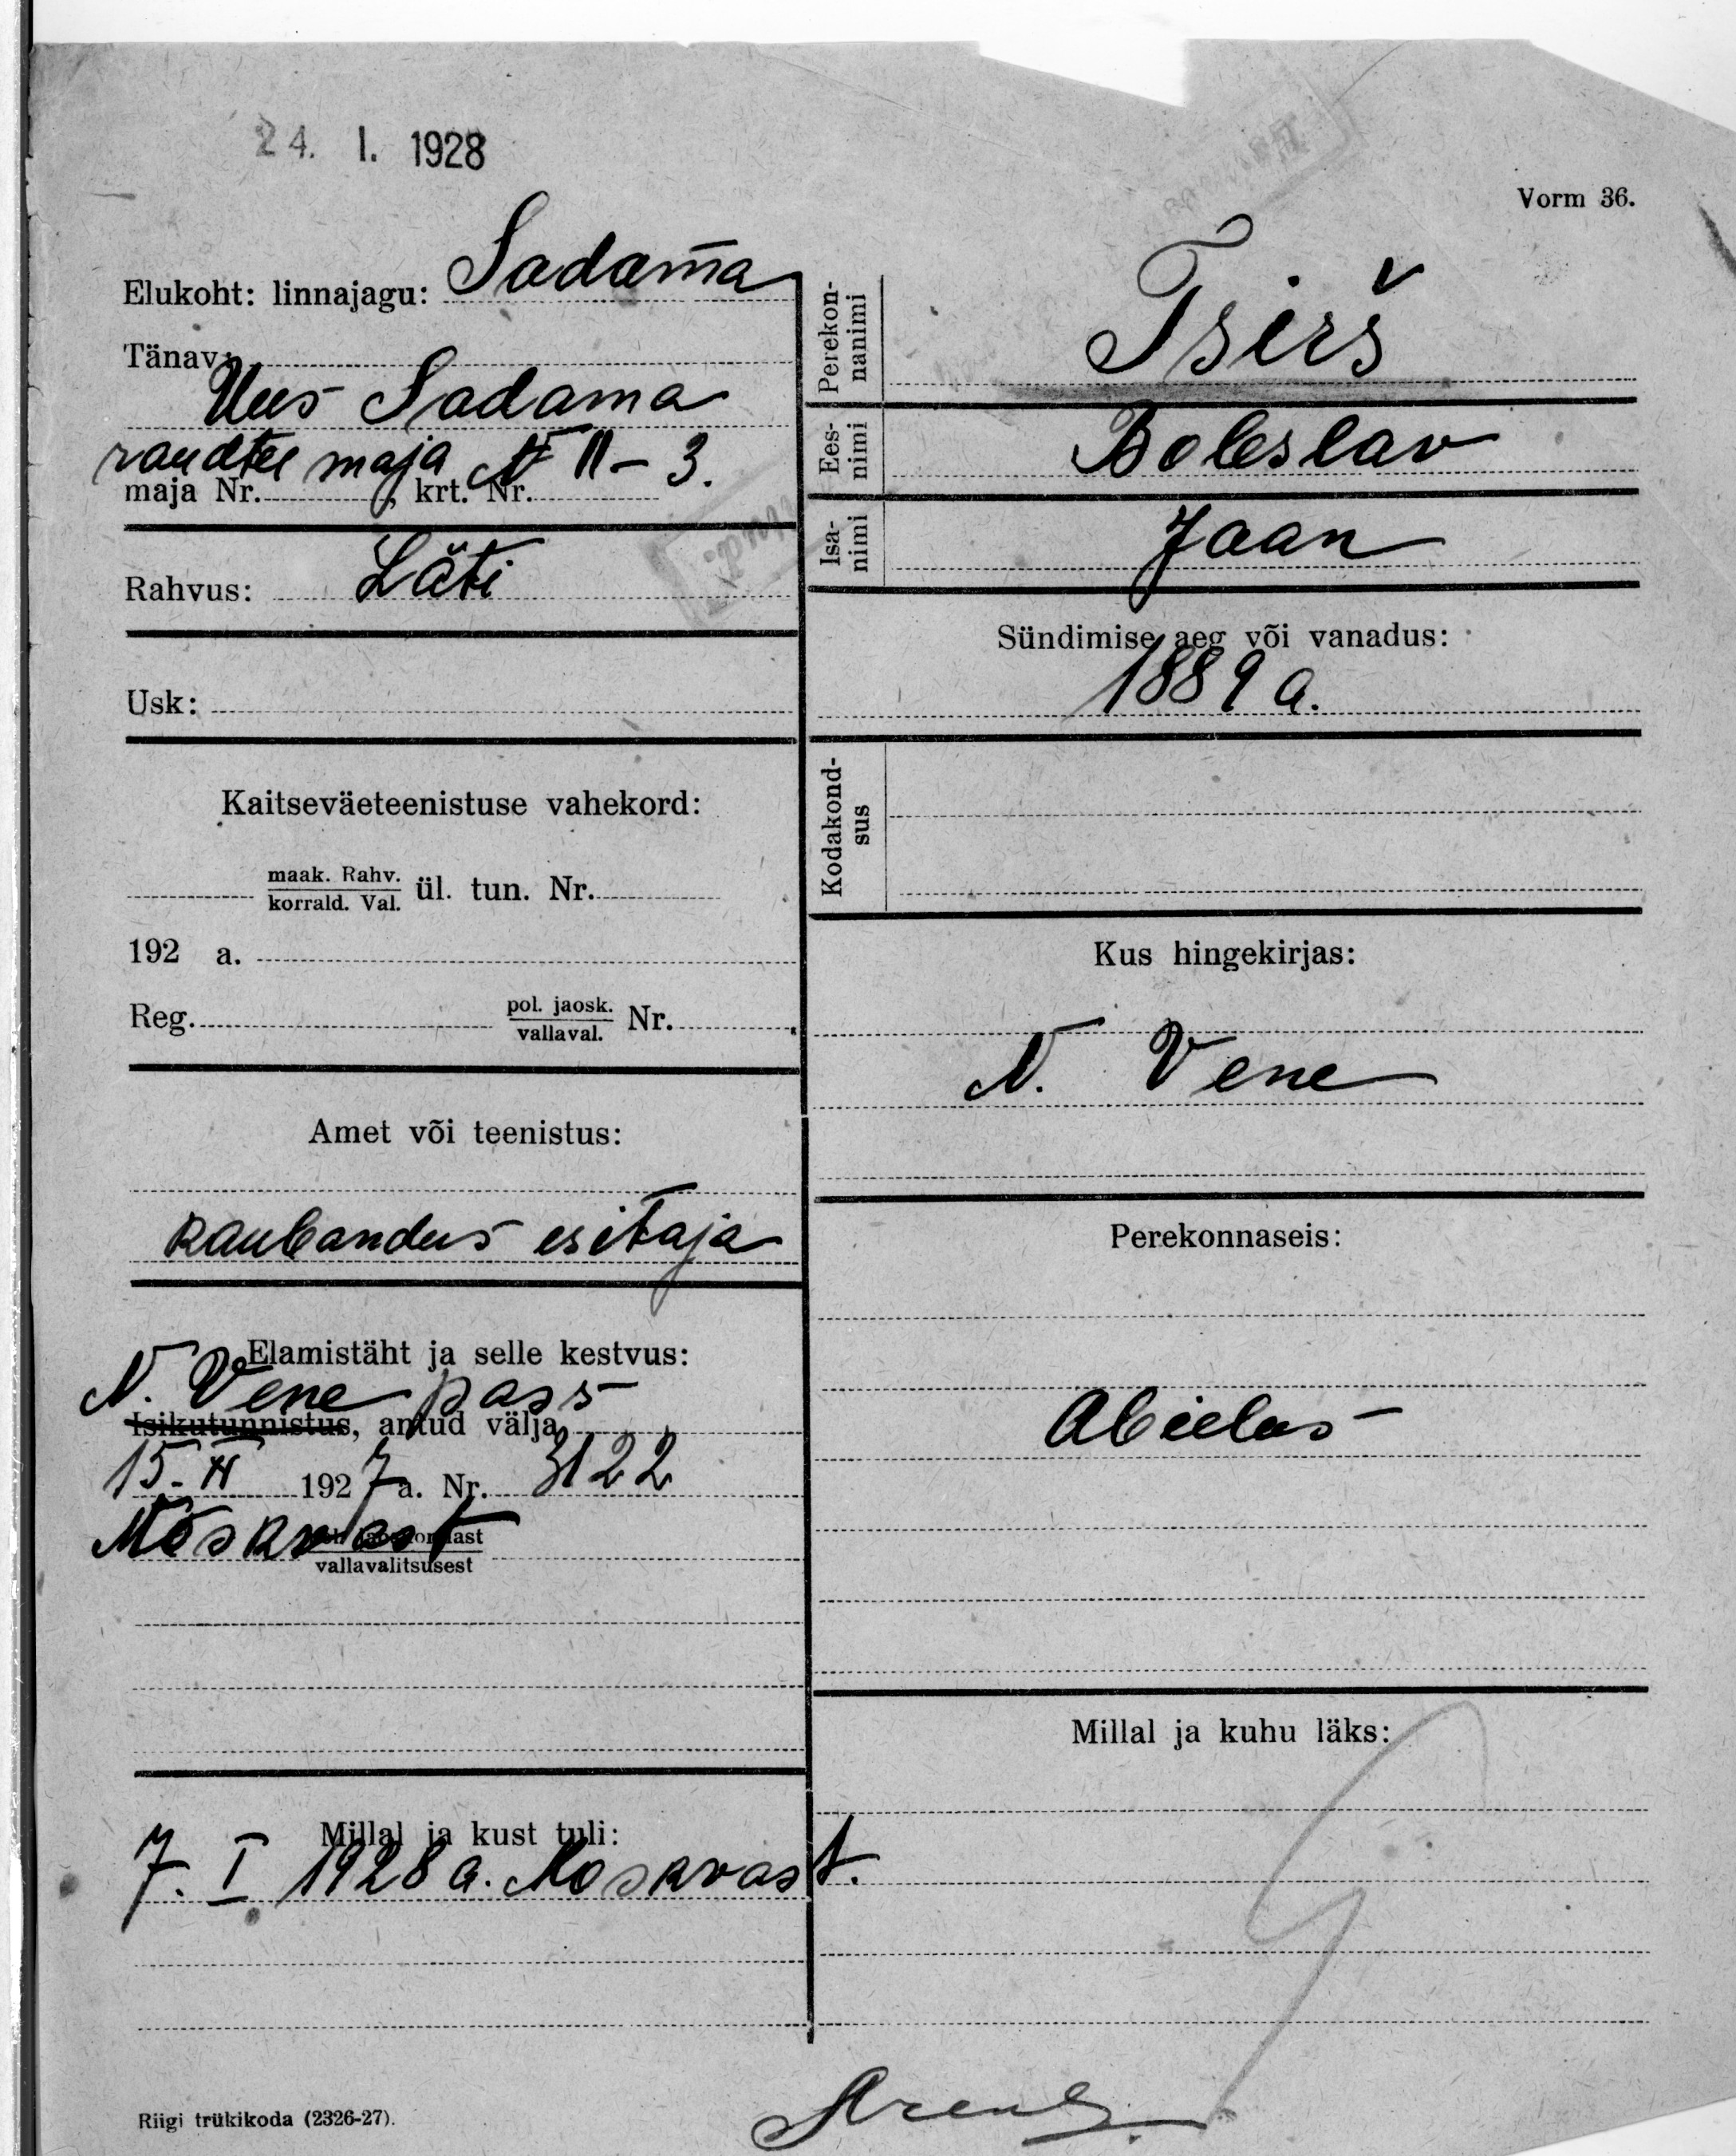 24. I. 1928
Vorm 36.
Elukoht: linnajagu: Sadama
Tänav:
Uus Sadama
raudtee maja № 11 – 3.
maja Nr. , krt. Nr.
Rahvus: Läti
Usk:
Kaitseväeteenistuse vahekord:
maak. Rahv.
korrald. Val. ül. tun. Nr.
192 a.
Reg. pol. jaosk.
vallaval. Nr.
Amet või teenistus:
kaubandus esitaja
Elamistäht ja selle kestvus:
N. Vene pass
Isikutunnistus, antud välja
15. 192 7 a. Nr. 3122
Moskvast
vallavalitsusest
Millal ja kust tuli:
7. I 1928 a. Moskvast.
Riigi trükikoda (2326-27).
Perekon-
nanimi
Tsirš
Ees-
nimi
Boleslav
Isa-
nimi
Jaan
Sündimise aeg või vanadus:
1889 a.
Kodakond-
sus
Kus hingekirjas:
N. Vene
Perekonnaseis:
Abielus
Millal ja kuhu läks: